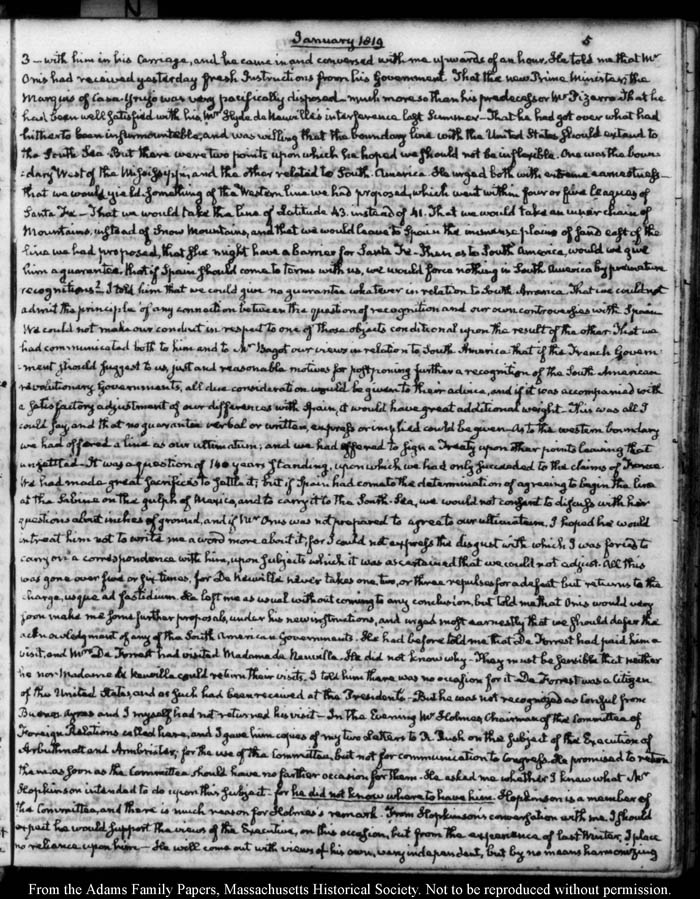 January 1819
5
3 – with him in his Carriage, and he came in and conversed with me upwards of an hour. He told me that Mr
Onis had received yesterday fresh Instructions from his Government. That the new Prime Minister, the
Marquis of Casa-Yrujo was very pacifically disposed – much more so than his predecessor Mr Pizarro. That he
had been well satisfied with his, Mr Hyde de Neuville's interference last Summer – That he had got over what had
hitherto been insurmountable, and was willing that the boundary line with the United States should extend to
the South Sea. But there were two points upon which he hoped we should not be inflexible. One was the boun-
-dary West of the Mississippi, and the other related to South America. He urged both with extreme earnestness –
that we would yield something of the Western line we had proposed, which went within four or five leagues of
Santa Fe – That we would take the line of Latitude 43. instead of 41. That we would take an upper chain of
Mountains, instead of Snow Mountains, and that we would leave to Spain the immense plains of sand east of the
line we had proposed, that she might have a barrier for Santa Fe – Then as to South America, would we give
him a guarantee, that if Spain should come to terms with us, we would force nothing in South America by premature
recognitions? I told him that we could give no guarantee whatever in relation to South America. That we could not
admit the principle of any connection between the question of recognition and our own controversies with Spain.
We could not make our conduct in respect to one of those objects conditional upon the result of the other. That we
had communicated both to him and to Mr Bagot our views in relation to South America that if the French Govern-
-ment should suggest to us, just and reasonable motives for postponing further a recognition of the South American
revolutionary Governments, all due consideration would be given to their advice, and if it was accompanied with
a satisfactory adjustment of our differences with Spain, it would have great additional weight. This was all I
could say, and that no guarantee verbal or written, express or implied could be given – As to the western boundary
we had offered a line as our ultimatum; and we had offered to sign a Treaty upon other points leaving that
unsettled – It was a question of 140 years standing, upon which we had only succeeded to the claims of France.
We had made great sacrifices to settle it; but if Spain had come to the determination of agreeing to begin the line
at the Sabine on the gulph of Mexico, and to carry it to the South-Sea, we would not consent to discuss with her
questions about inches of ground, and if Mr Onis was not prepared to agree to our ultimatum, I hoped he would
intreat him not to write me a word more about it; for I could not express the disgust with which I was forced to
carry on a correspondence with him, upon subjects which it was ascertained that we could not adjust. All this
was gone over five or six times, for De Neuville never takes one, two, or three repulses for a defeat but returns to the
charge, usque ad fastidium. He left me as usual without coming to any conclusion, but told me that Onis would very
soon make me some further proposals, under his new instructions, and urged most earnestly that we should defer the
acknowledgment of any of the South American Governments. He had before told me that De Forrest had paid him a
visit, and Mrs De Forrest had visited Madame de Neuville. He did not know why – They must be sensible that neither
he nor Madame de Neuville could return their visits. I told him there was no occasion for it – De Forrest was a Citizen
of the United States, and as such had been received at the Presidents – But he was not recognized as Consul from
Buenos Ayres and I myself had not returned his visit – In the Evening Mr Holmes, Chairman of the Committee of
Foreign Relations called here, and I gave him copies of my two Letters to R. Rush on the subject of the Execution of
Arbuthnott and Ambrister, for the use of the Committee, but not for communication to Congress. He promised to return
them as soon as the Committee should have no further occasion for them – He asked me whether I knew what Mr
Hopkinson intended to do upon this subject – for he did not know where to have him. Hopkinson is a member of
the Committee, and there is much reason for Holmes's remark – From Hopkinson's conversation with me, I should
expect he would support the views of the Executive, on this occasion, but from the experience of last Winter, I place
no reliance upon him – He will come out with views of his own, very independent, but by no means harmonizing
From the Adams Family Papers, Massachusetts Historical Society. Not to be reproduced without permission.